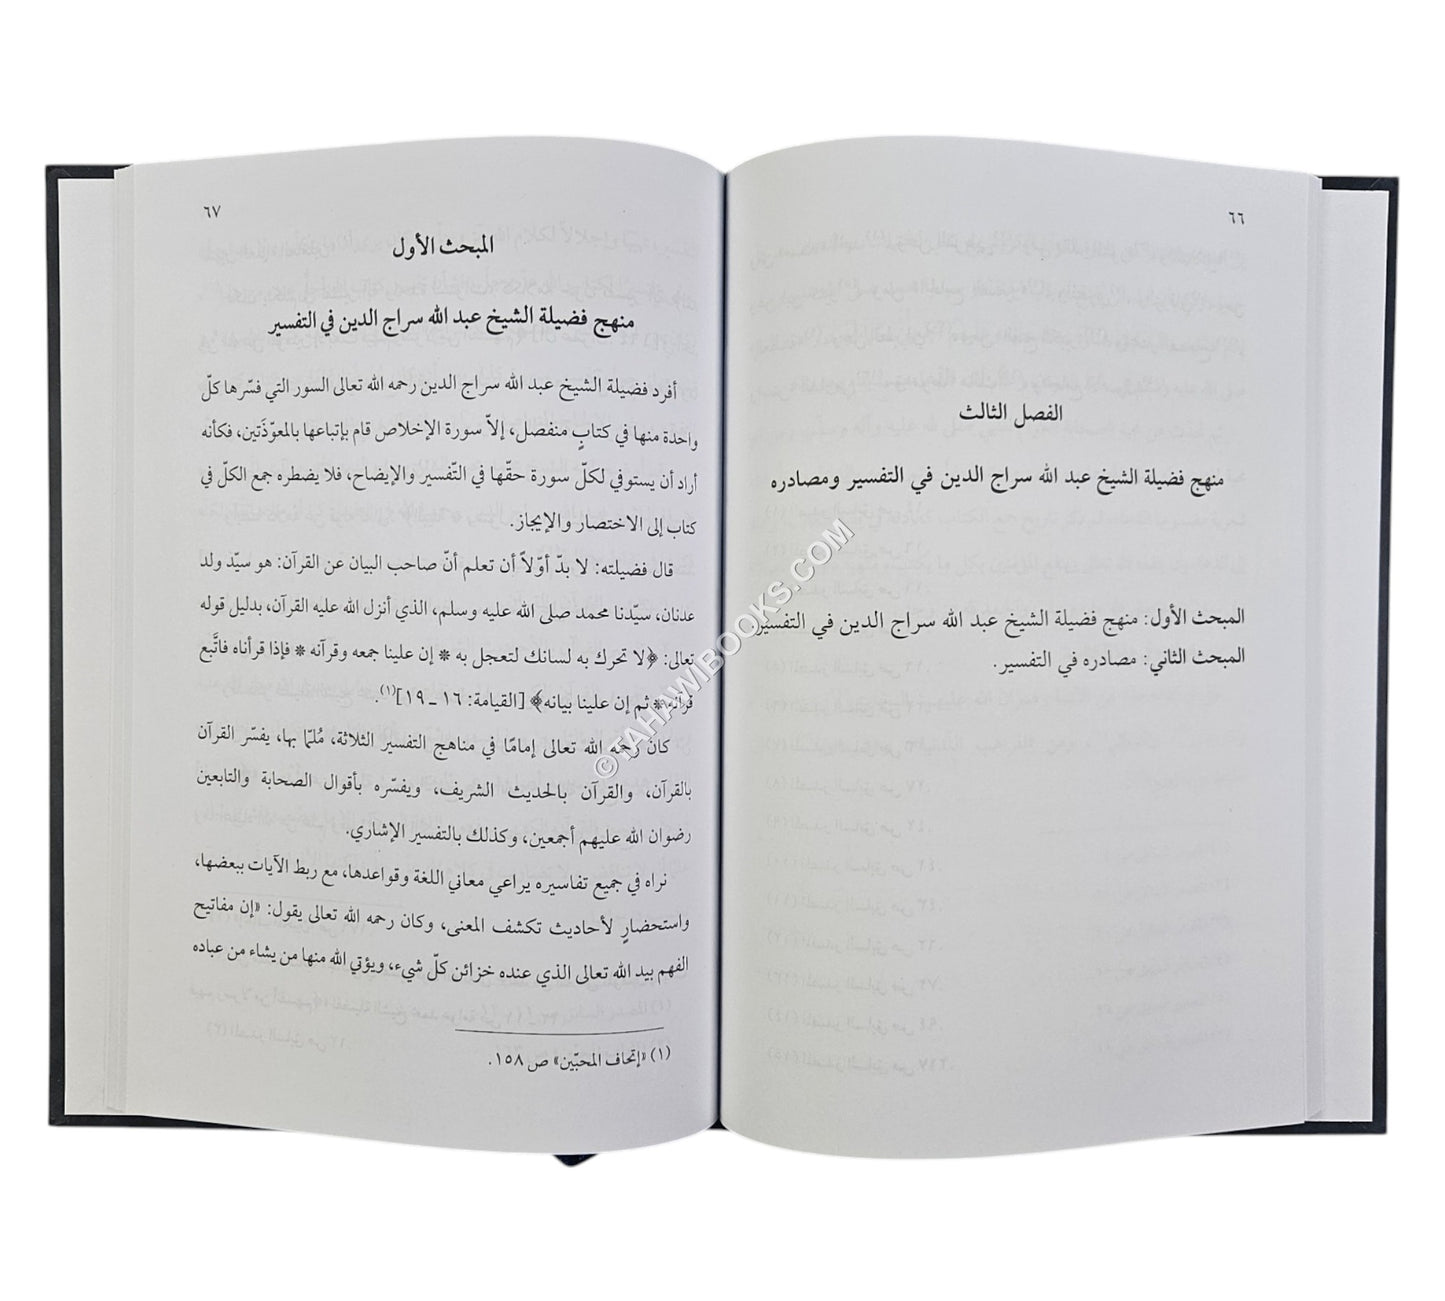 ٦٦
الفصل الثالث
منهج فضيلة الشيخ عبد الله سراج الدين في التفسير ومصادره
المبحث الأول: منهج فضيلة الشيخ عبد الله سراج الدين في التفسير
المبحث الثاني: مصادره في التفسير.
٦٧
المبحث الأول
منهج فضيلة الشيخ عبد الله سراج الدين في التفسير
أفرد فضيلة الشيخ عبد الله سراج الدين رحمه الله تعالى السور التي فسّرها كلّ
واحدة منها في كتابٍ منفصل، إلاّ سورة الإخلاص قام بإتباعها بالمعوّذَتين، فكأنه
أراد أن يستوفي لكلّ سورة حقّها في التّفسير والإيضاح، فلا يضطره جمع الكلّ في
كتاب إلى الاختصار والإيجاز.
قال فضيلته: لا بدّ أوّلاً أن تعلم أنّ صاحب البيان عن القرآن: هو سيّد ولد
عدنان، سيّدنا محمد صلى الله عليه وسلم، الذي أنزل الله عليه القرآن، بدليل قوله
تعالى: ﴿لا تحرك به لسانك لتعجل به * إن علينا جمعه وقرآنه * فإذا قرأناه فاتَّبع
قرآنه * ثم إن علينا بيانه﴾ [القيامة: ١٦ ـ ١٩](١).
كان رحمه الله تعالى إمامًا في مناهج التفسير الثلاثة، مُلمًّا بها، يفسّر القرآن
بالقرآن، والقرآن بالحديث الشريف، ويفسّره بأقوال الصحابة والتابعين
رضوان الله عليهم أجمعين، وكذلك بالتفسير الإشاري.
نراه في جميع تفاسيره يراعي معاني اللغة وقواعدها، مع ربط الآيات ببعضها،
واستحضارٍ لأحاديث تكشف المعنى، وكان رحمه الله تعالى يقول: «إن مفاتيح
الفهم بيد الله تعالى الذي عنده خزائن كلّ شيء، ويؤتي الله منها من يشاء من عباده
(١) «إتحاف المحبّين» ص ١٥٨.
©TAHAWIBOOKS.COM